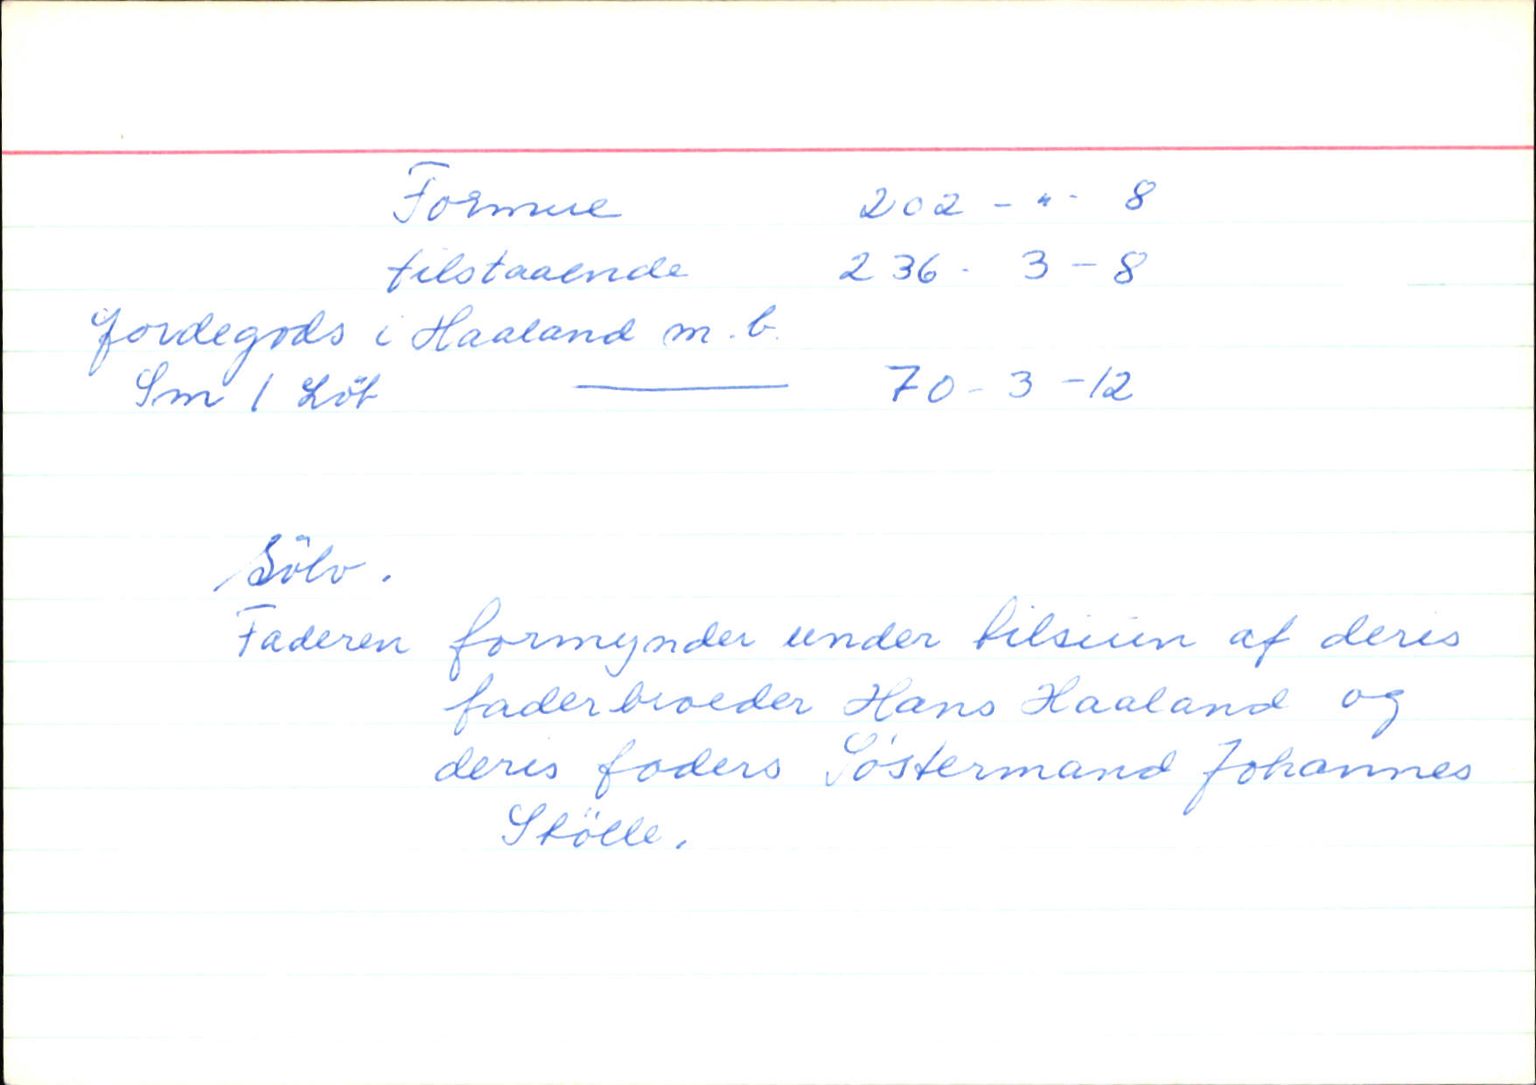 Formue 202 - " - 8
tilstaaende 236 - 3 - 8
Jordegods i Haaland m.b.
Sm 1 Löb — 70 - 3 - 12
Sölv.
Faderen formynder under tilsiun af deris
faderbroeder Hans Haaland og
deris faders Söstermand Johannes
Stölle.